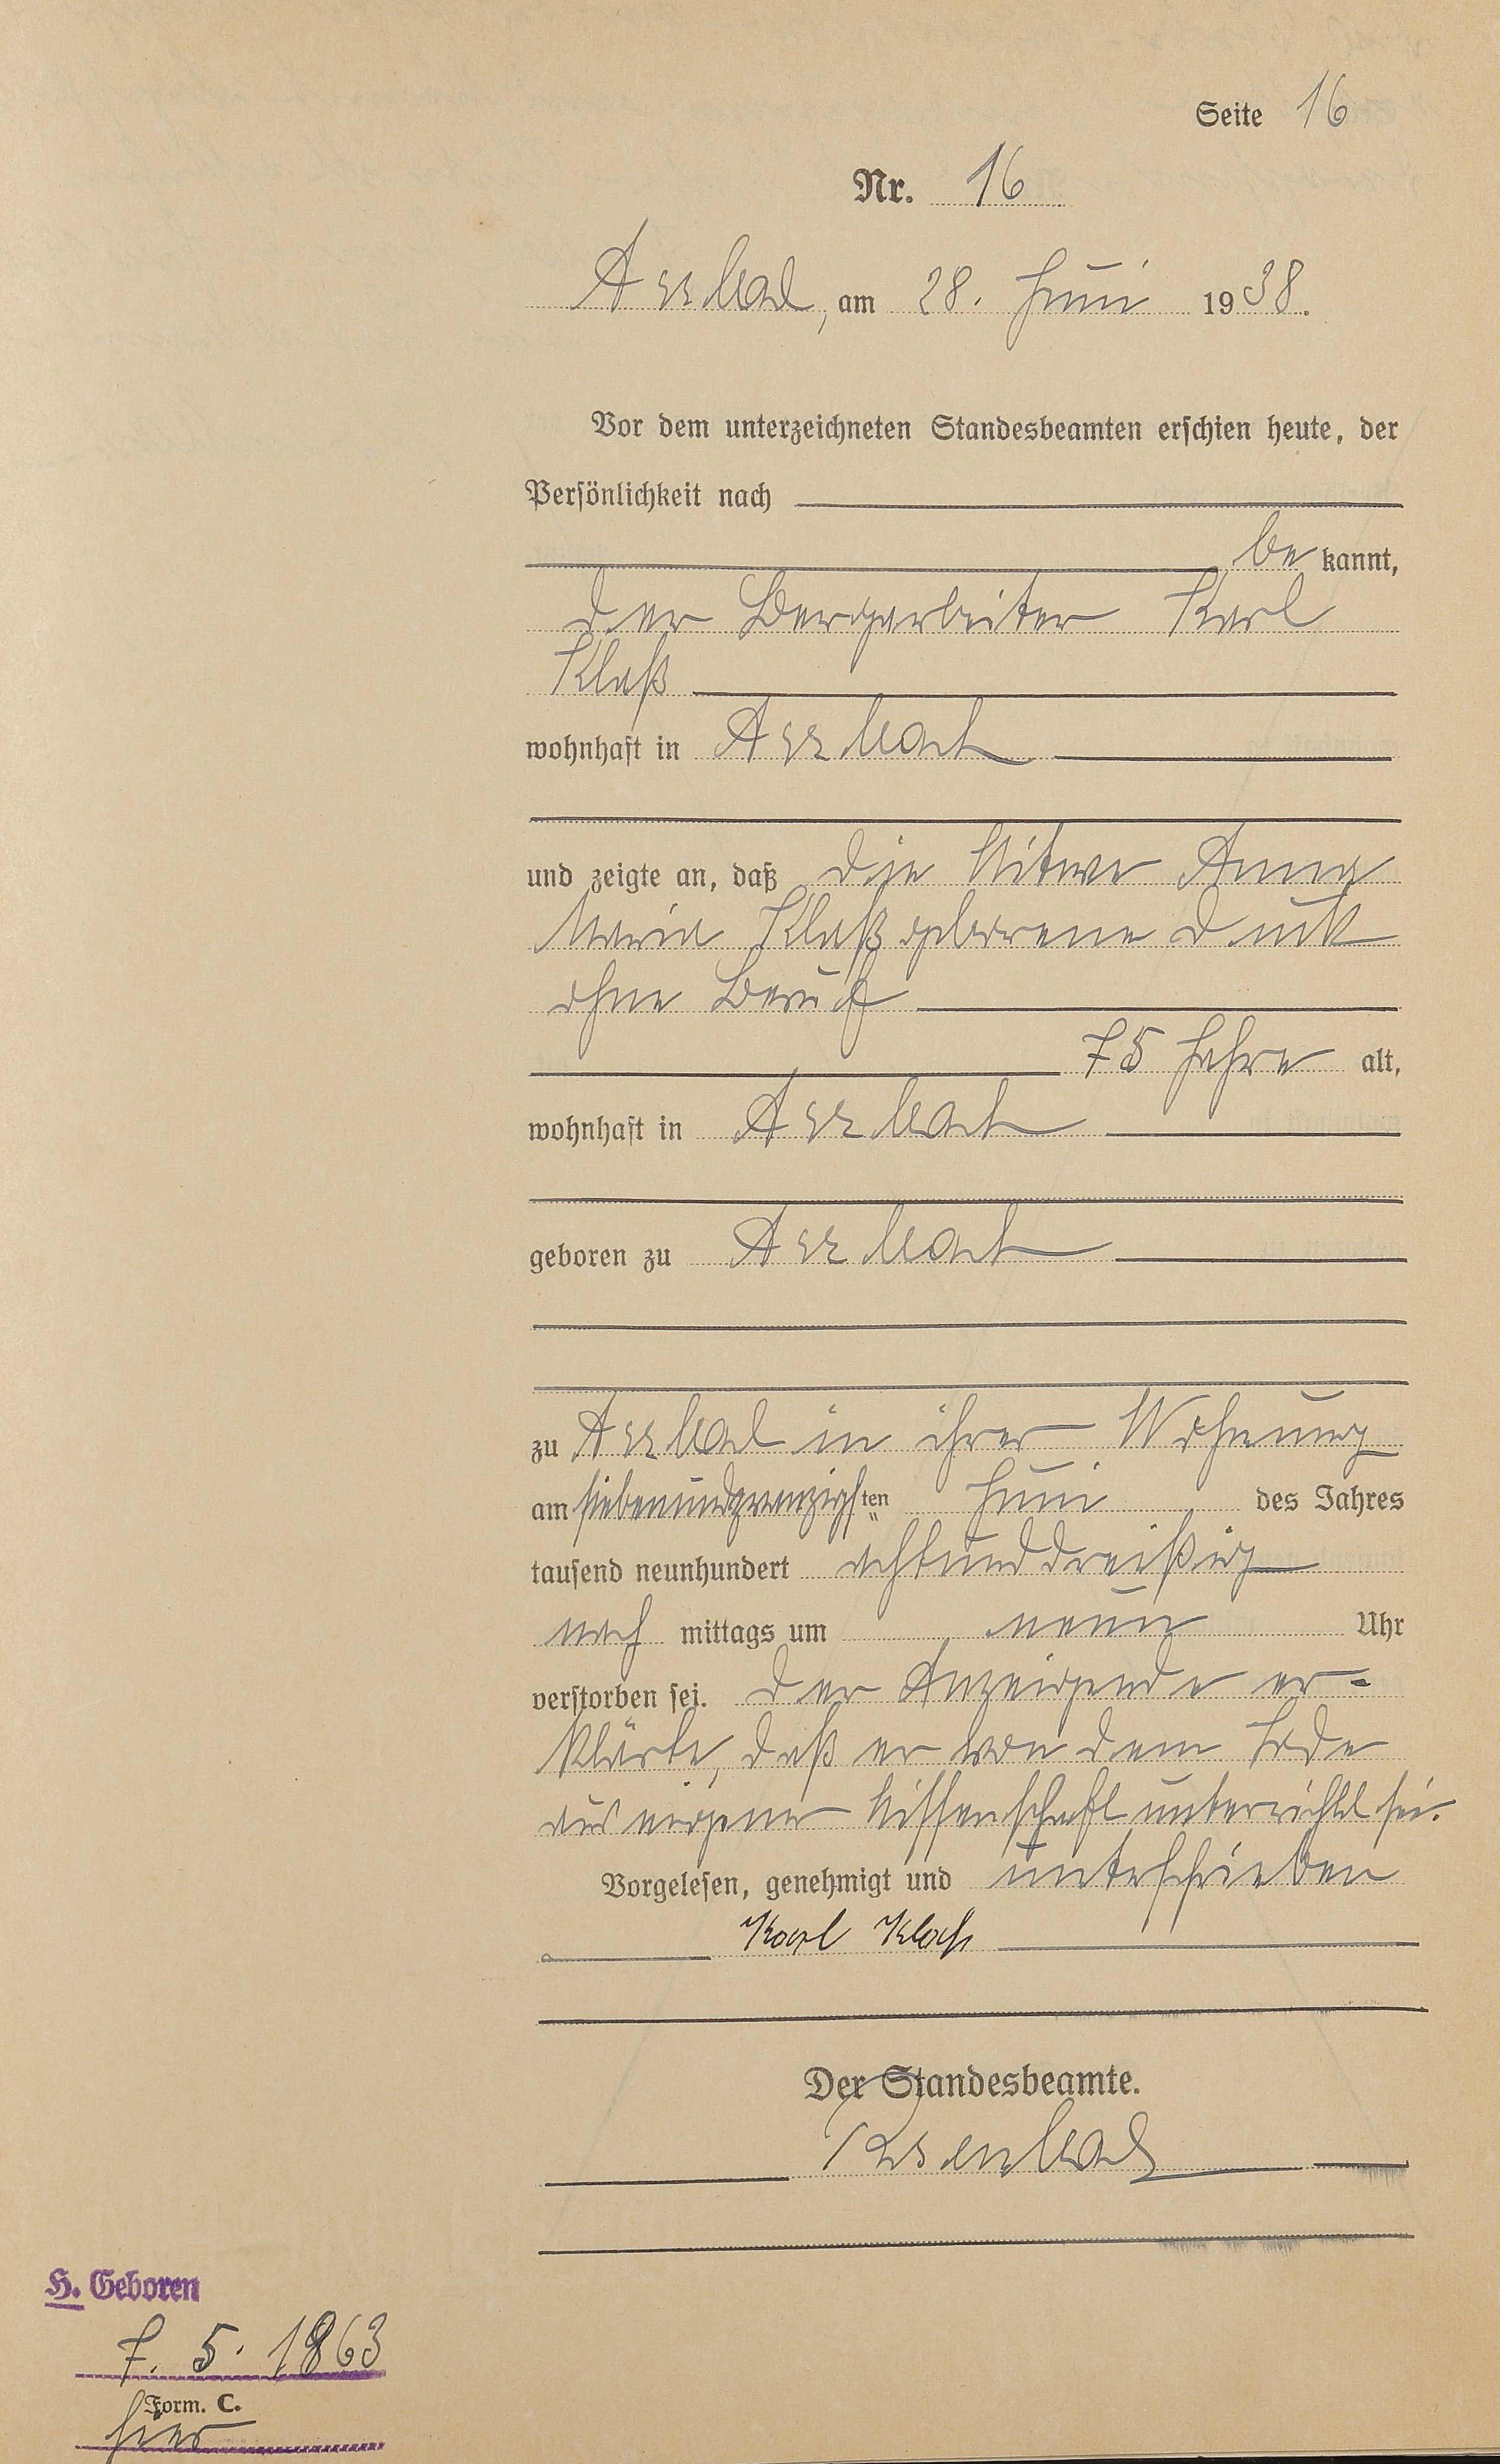 Seite 16
Nr. 16
Arzbach, am 28. Juni 1938.
Vor dem unterzeichneten Standesbeamten erschien heute, der
Persönlichkeit nach
be kannt,
der Bergarbeiter Karl
Klaß
wohnhaft in Arzbach
und zeigte an, daß die Witwe Anna
Maria Klaß geborene
ohne Beruf
75 Jahre alt,
wohnhaft in Arzbach
geboren zu Arzbach
zu Arzbach in ihrer Wohnung
am siebenundzwanzigsten Juni des Jahres
tausend neunhundert achtunddreißig
nach mittags um neun Uhr
verstorben sei. Der Anzeigende er-
klärte, daß er von dem Tode
aus eigener Wissenschaft unterrichtet sei.
Vorgelesen, genehmigt und unterschrieben
Karl Klaß
Der Standesbeamte.
H. Geboren
7. 5. 1863
Form. C.
hier